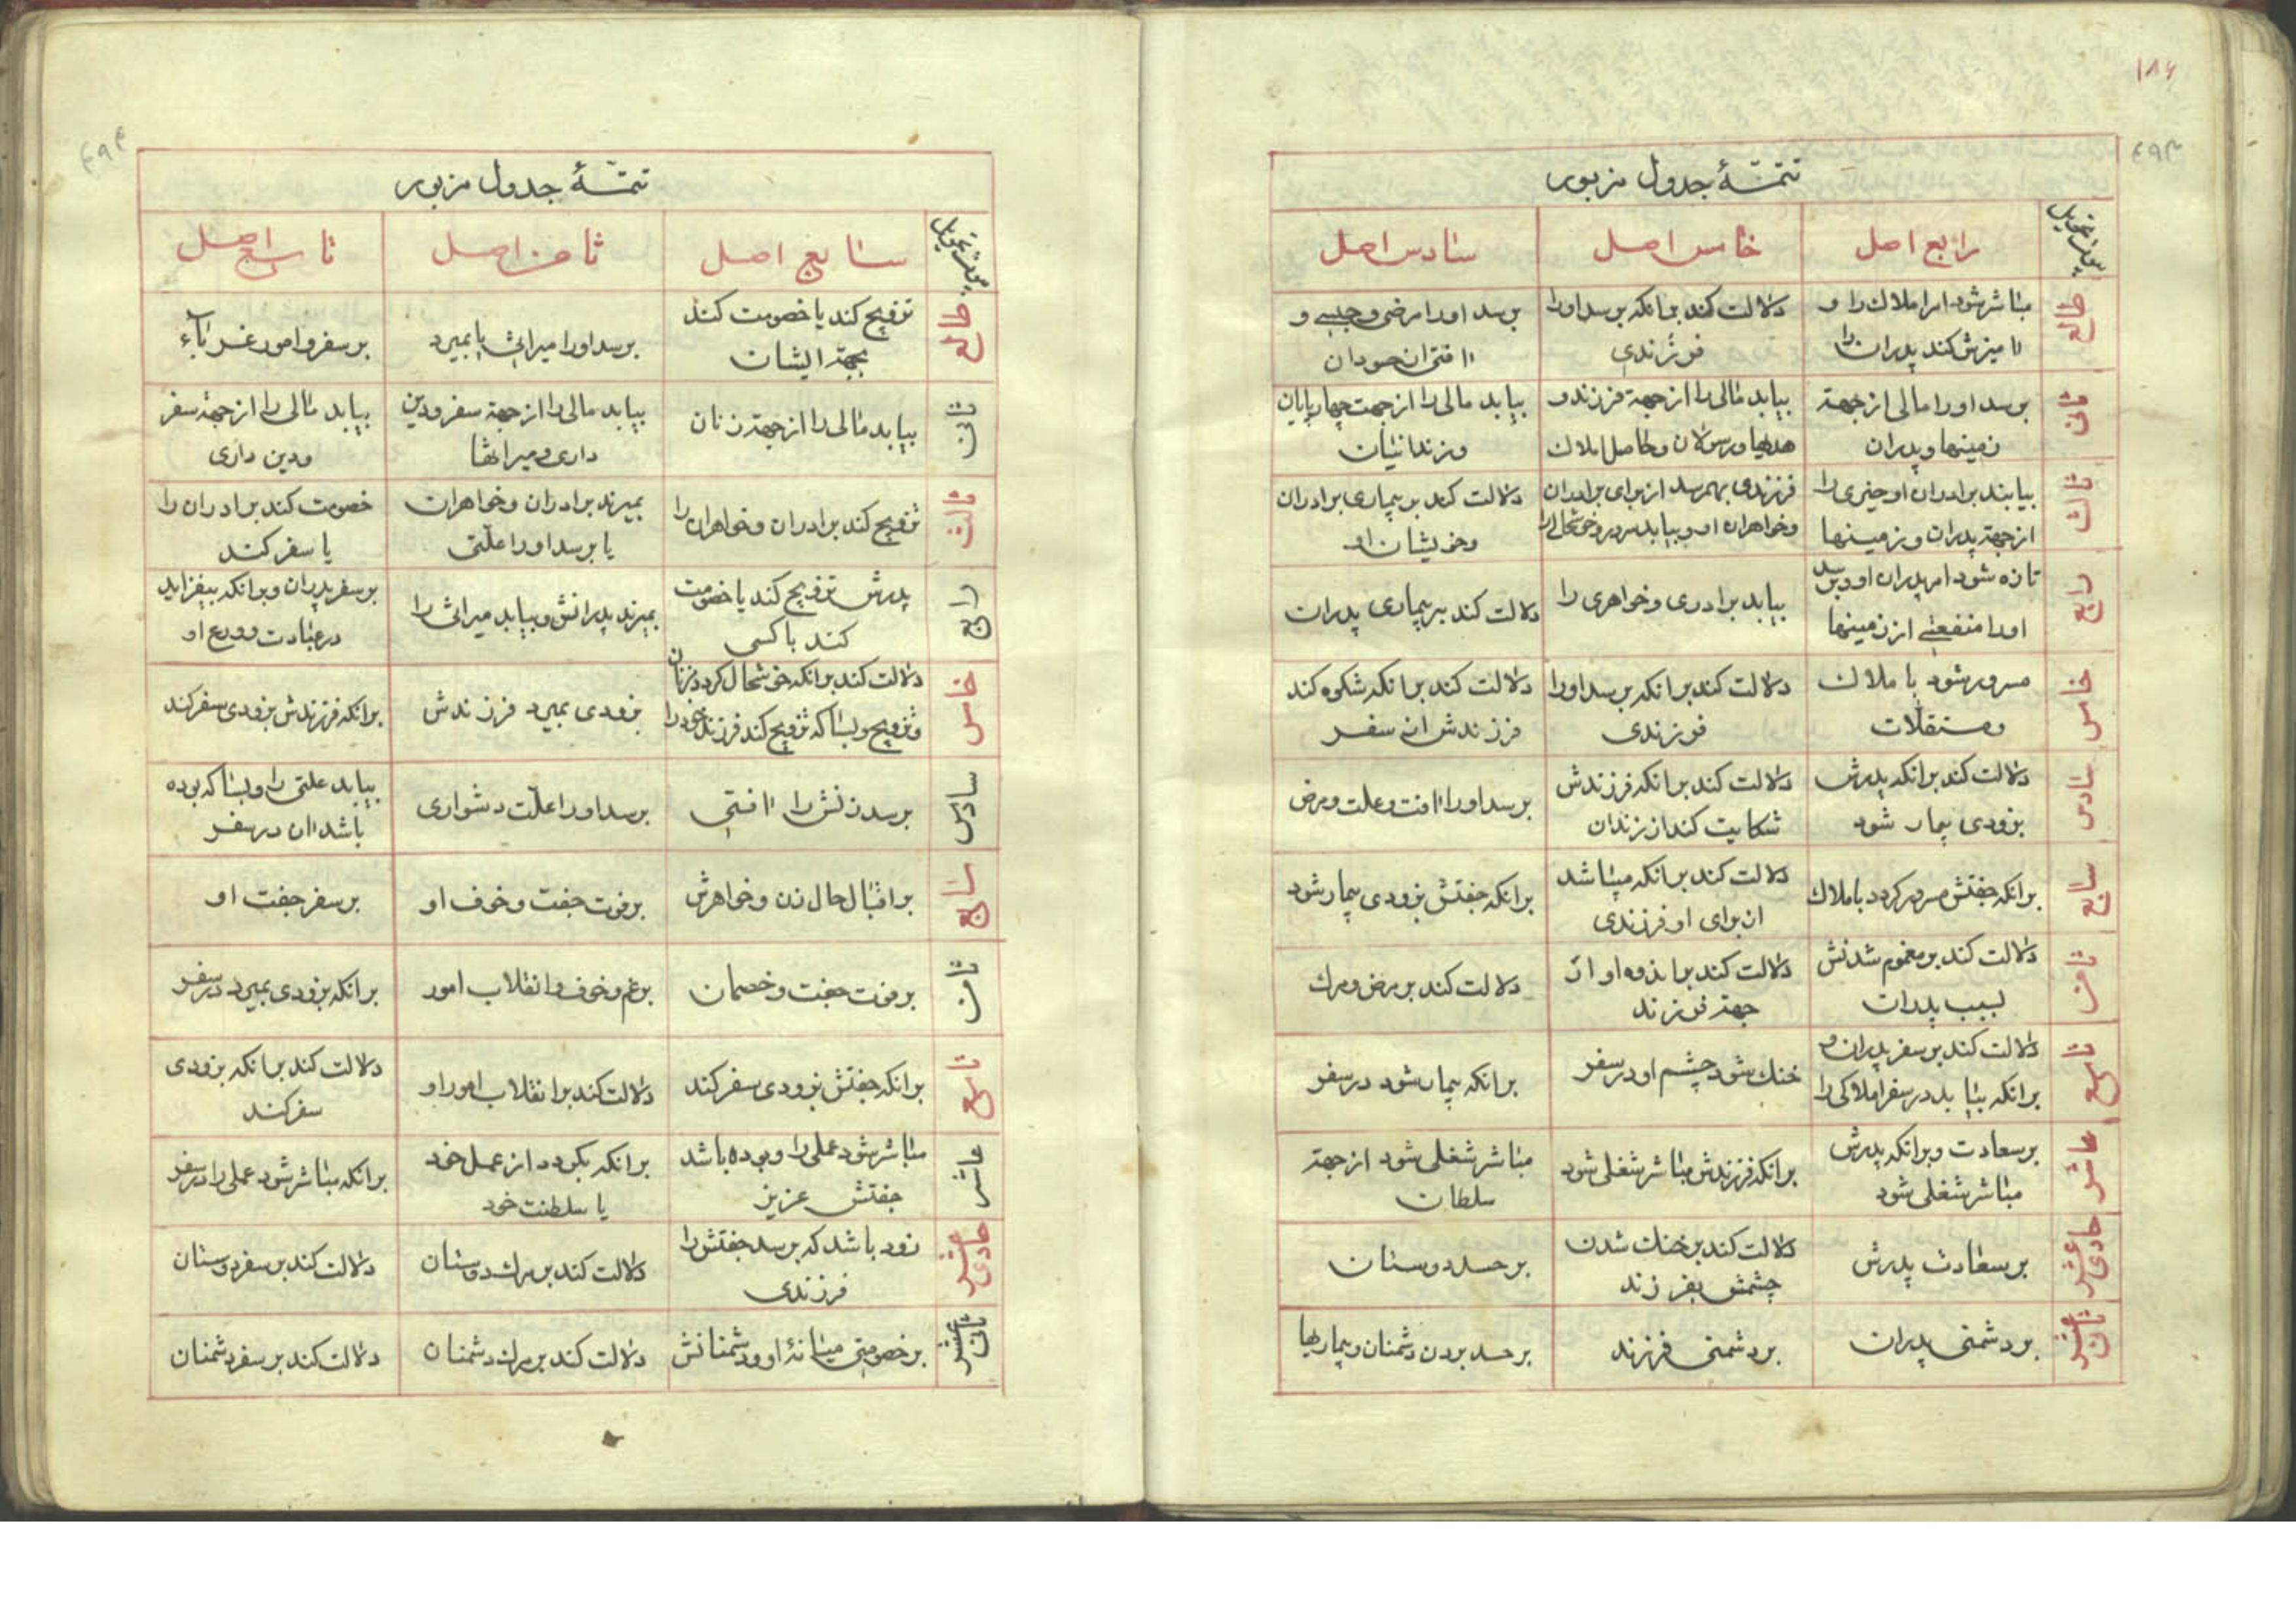 ۱۸۶
۴۹۳
تتمّهٔ جدول مزبور
رابع اصل
خامس اصل
سادس اصل
طالع
مباشر شود امر املاك را و
امیزش کند پدران را
دلالت کند بر انکه برسد اورا
فرزندی
برسد اورا مرضی و حبسی و
افتی از حسودان
ثانی
برسد اورا مالی از جهة
زمینها و پدران
بیابد مالی را از جهة فرزند و
هدیها و رسولان و حاصل املاك
بیابد مالی را از جهت چهارپایان
و زندانیان
ثالث
بیابند برادران او چیزی را
از جهة پدران و زمینها
فرزندی بهمرسد از برای برادران
و خواهران او و بیابد سرور و خوشحالی را
دلالت کند بر بیماری برادران
و خویشان او
رابع
تازه شود امر پدران او و برسد
اورا منفعتی از زمینها
بیابد برادری و خواهری را
دلالت کند بر بیماری پدران
خامس
مسرور شود باملاك
و مستقلات
دلالت کند بر انکه برسد اورا
فرزندی
دلالت کند بر انکه شکوه کند
فرزندش از سفر
سادس
دلالت کند بر انکه پدرش
بزودی بیمار شود
دلالت کند بر انکه فرزندش
شکایت کند از زندان
برسد اورا افت و علت و مرض
سابع
بر انکه جفتش مسرور کردد باملاك
دلالت کند بر انکه میباشد
از برای او فرزندی
بر انکه جفتش بزودی بیمار شود
ثامن
دلالت کند بر مغموم شدنش
بسبب پدران
دلالت کند باندوه او از
جهة فرزند
دلالت کند بر مرض و مرك
تاسع
دلالت کند بر سفر پدران و
بر انکه بیابد در سفر املاکی را
خنك شود چشم او در سفر
بر انکه بیمار شود در سفر
عاشر
بر سعادت و بر انکه پدرش
مباشر شغلی شود
بر انکه فرزندش مباشر شغلی شود
مباشر شغلی شود از جهة
سلطان
حادی عشر
بر سعادت پدرش
دلالت کند بر خنك شدن
چشمش بفرزند
بر حسد دوستان
ثانی عشر
بر دشمنی پدران
بر دشمنی فرزند
بر حسد بردن دشمنان و بیماریها
۴۹۴
تتمّهٔ جدول مزبور
سابع اصل
ثامن اصل
تاسع اصل
طالع
تزویج کند یا خصومت کند
بجهة ایشان
برسد اورا میراثی یا بمیرد
بر سفر و امور
ثانی
بیابد مالی را از جهة زنان
بیابد مالی را از جهة سفر و دین
داری و میراثها
بیابد مالی را از جهة سفر
و دین داری
ثالث
تزویج کند برادران و خواهران را
بمیرند برادران و خواهران
یا برسد اورا علّتی
خصومت کند برادران را
یا سفر کند
رابع
پدرش تزویج کند یا خصومت
کند با کسی
بمیرند پدرانش و بیابد میراثی را
بر سفر پدران و بر انکه بیفزاید
در عبادت و ورع او
خامس
دلالت کند بر انکه خوشحال کردد بزنان
و تزویج و بسا که تزویج کند فرزند خود را
بزودی بمیرد فرزندش
بر انکه فرزندش بزودی سفر کند
سادس
برسد زنش را افتی
برسد اورا علّت دشواری
بیابد علتی را و بسا که بوده
باشد ان در سفر
سابع
بر اقبال حال زن و خواهرش
بر فوت جفت و خوف او
بر سفر جفت او
ثامن
بر فوت جفت و خصمان
بر غم و خوف و انقلاب امور
بر انکه بزودی بمیرد در سفر
تاسع
بر انکه جفتش بزودی سفر کند
دلالت کند بر انقلاب امور او
دلالت کند بر انکه بزودی
سفر کند
عاشر
مباشر شود عملی را و بوده باشد
جفتش عزیز
بر انکه بکردد از عمل خود
یا سلطنت خود
بر انکه مباشر شود عملی را در سفر
حادی عشر
زود باشد که برسد جفتش را
فرزندی
دلالت کند بر مرك دوستان
دلالت کند بر سفر دوستان
ثانی عشر
بر خصومتی میانهٔ او و دشمنانش
دلالت کند بر مرك دشمنان
دلالت کند بر سفر دشمنان